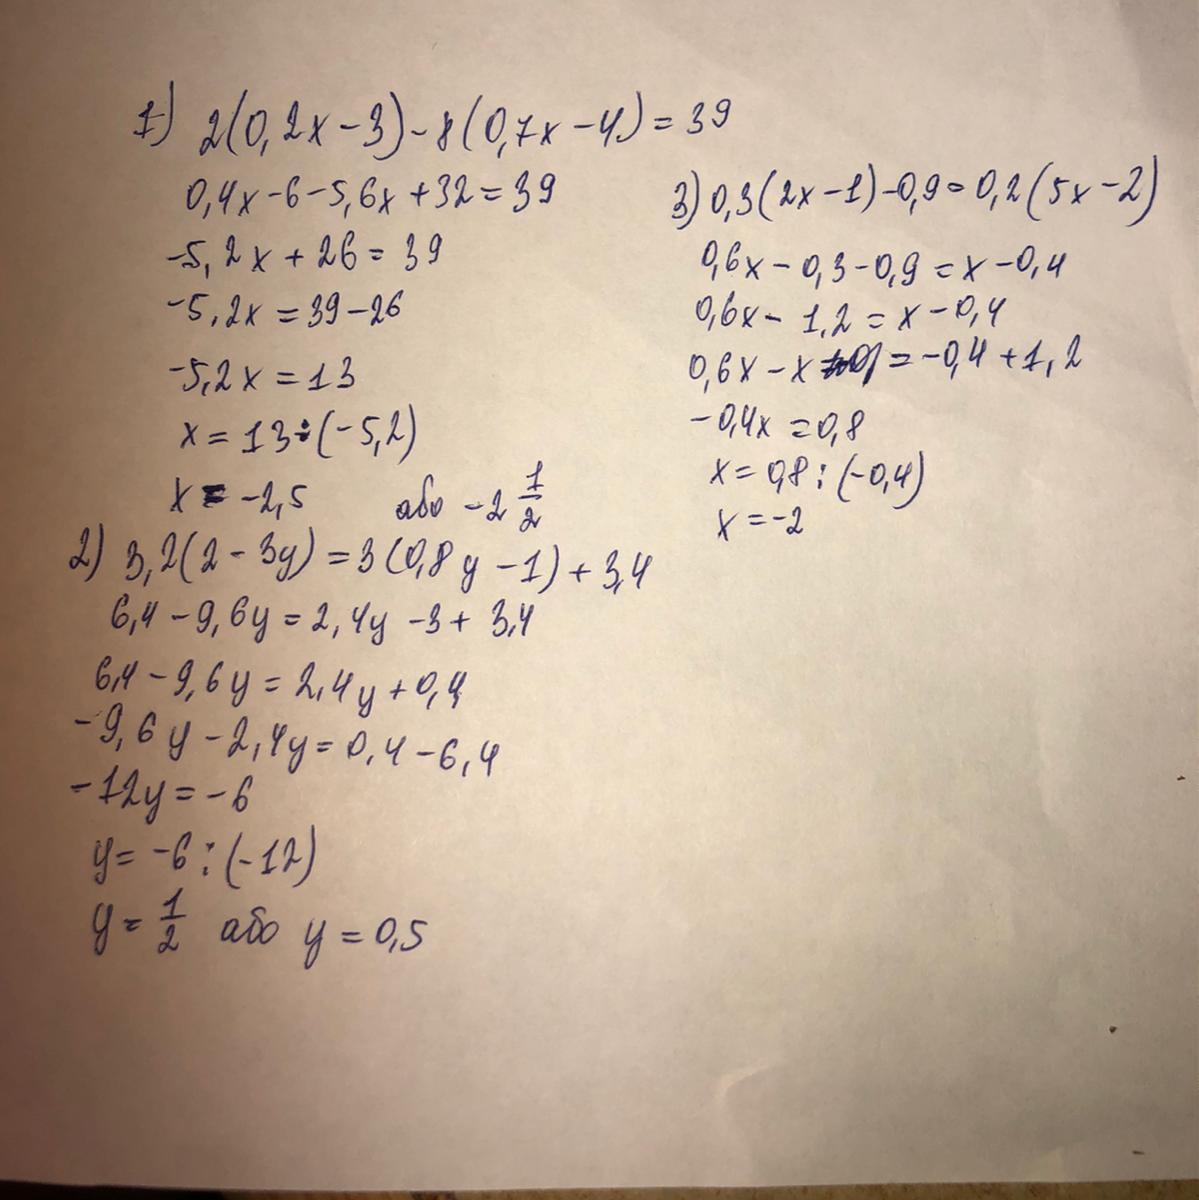 1) 2(0,2x-3)-8(0,7x-4)=39
0,4x-6-5,6x+32=39
-5,2x+26=39
-5,2x=39-26
-5,2x=13
x=13:(-5,2)
x=-2,5 або -2 1/2
2) 3,2(2-3y)=3(0,8y-1)+3,4
6,4-9,6y=2,4y-3+3,4
6,4-9,6y=2,4y+0,4
-9,6y-2,4y=0,4-6,4
-12y=-6
y=-6:(-12)
y=1/2 або y=0,5
3) 0,3(2x-1)-0,9=0,2(5x-2)
0,6x-0,3-0,9=x-0,4
0,6x-1,2=x-0,4
0,6x-x=-0,4+1,2
-0,4x=0,8
x=0,8:(-0,4)
x=-2